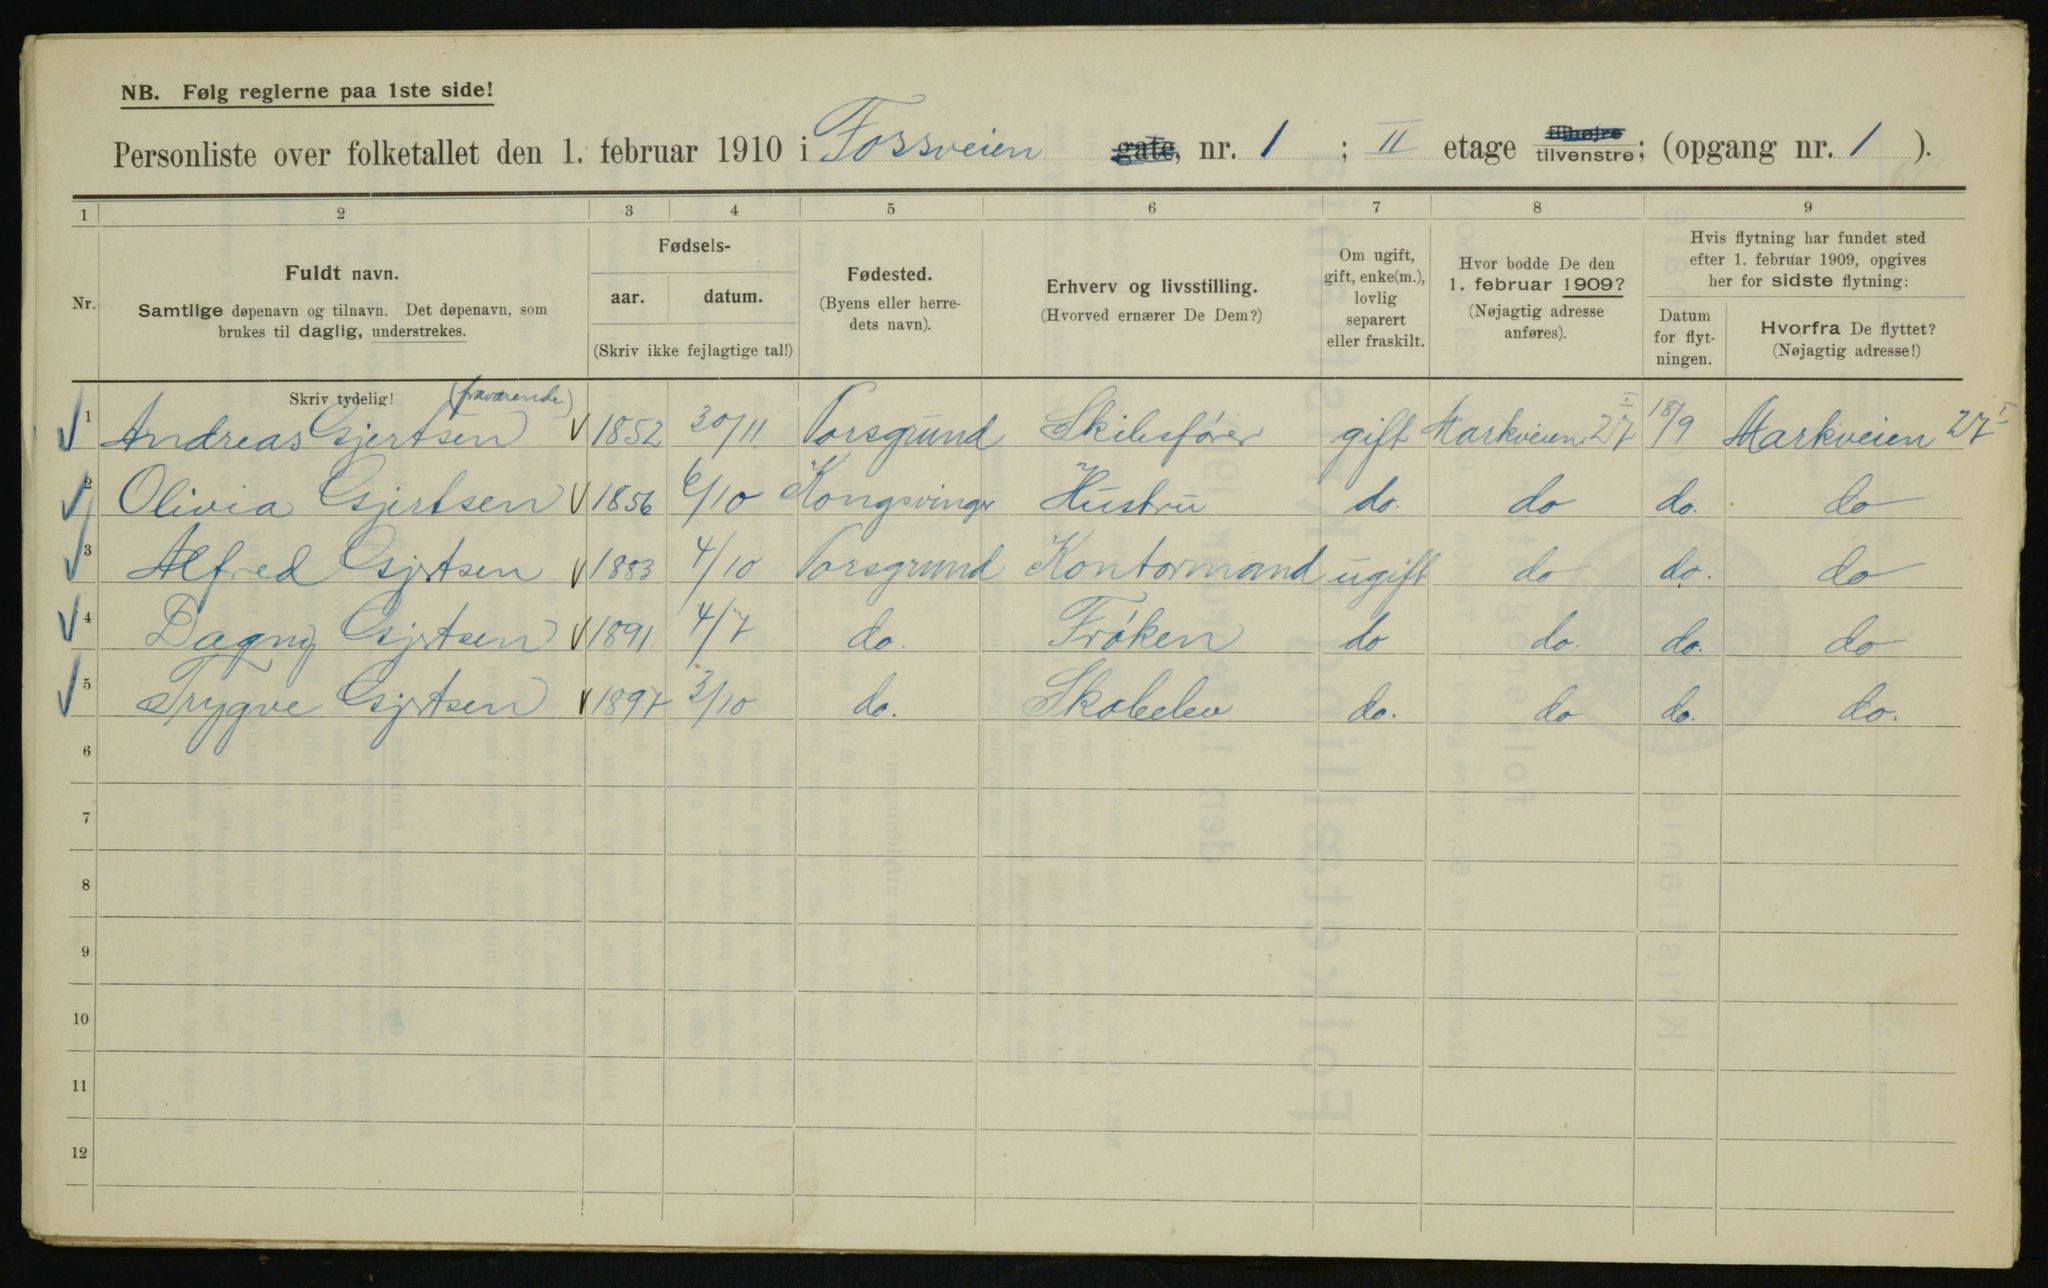 NB. Følg reglerne paa 1ste side!
Personliste over folketallet den 1. februar 1910 i Fossveien gate, nr. 1 ; II etage tilhøjre tilvenstre; (opgang nr. 1 ).
1 2 3 4 5 6 7 8 9
Nr.
Fuldt navn.
Samtlige døpenavn og tilnavn. Det døpenavn, som
brukes til daglig, understrekes.
Skriv tydelig!
Fødsels-
aar. datum.
(Skriv ikke fejlagtige tal!)
Fødested.
(Byens eller herre-
dets navn).
Erhverv og livsstilling.
(Hvorved ernærer De Dem?)
Om ugift,
gift, enke(m.),
lovlig
separert
eller fraskilt.
Hvor bodde De den
1. februar 1909?
(Nøjagtig adresse
anføres).
Hvis flytning har fundet sted
efter 1. februar 1909, opgives
her for sidste flytning:
Datum
for flyt-
ningen.
Hvorfra De flyttet?
(Nøjagtig adresse!)
(fraværende)
1 Andreas Gjertsen 1852 30/11 Porsgrund Skibsfører gift Markveien 27 I 18/9 Markveien 27 I
2 Olivia Gjertsen 1856 6/10 Kongsvinger Hustru do. do do. do
3 Alfred Gjrtsen 1883 4/10 Porsgrund Kontormand ugift do do. do
4 Dagny Gjrtsen 1891 4/7 do. Frøken do do. do. do
5 Trygve Gjrtsen 1897 3/10 do. Skoleelev do. do do. do.
6
7
8
9
10
11
12